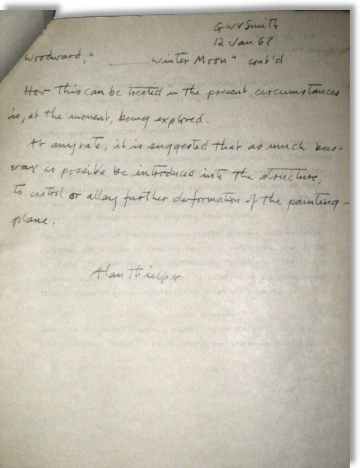 GWVSmith
12 Jan 68
Woodward, "Winter Moon" cont'd
How this can be treated in the present circumstances
is, at the moment, being explored.
At any rate, it is suggested that as much bees-
wax as posible be introduced into the structure,
to control or allay further deformation of the painting-
plane.
Alan Thielker